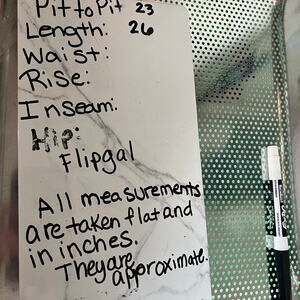 Pit to Pit 23
Length: 26
Waist:
Rise:
Inseam:
Hip:
Flipgal
All measurements
are taken flat and
in inches.
They are
approximate.